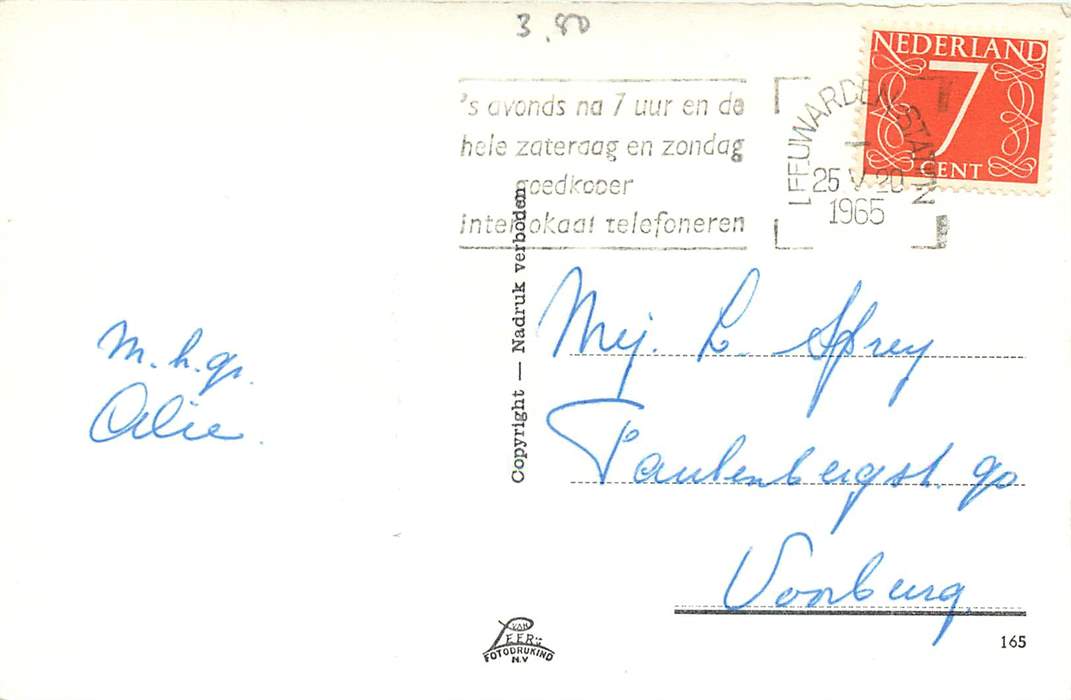 3.80
NEDERLAND
7
CENT
's avonds na 7 uur en de
hele zaterdag en zondag
goedkoper
interlokaal telefoneren
LEEUWARDEN STATION
25 V 20
1965
M. h. gr.
Alie.
Copyright — Nadruk verboden
Mej. L. Sprey
90
Voorburg
VAN
LEER'S
FOTODRUKIND
N.V
165